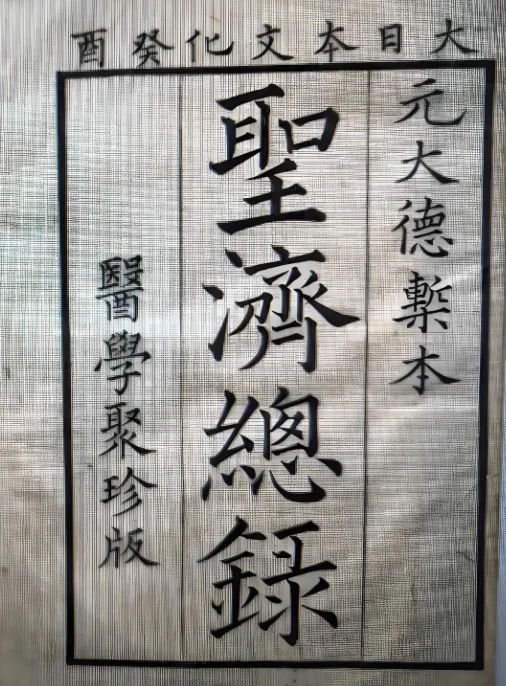 大日本文化癸酉
元大德槧本
聖濟總錄
醫學聚珍版